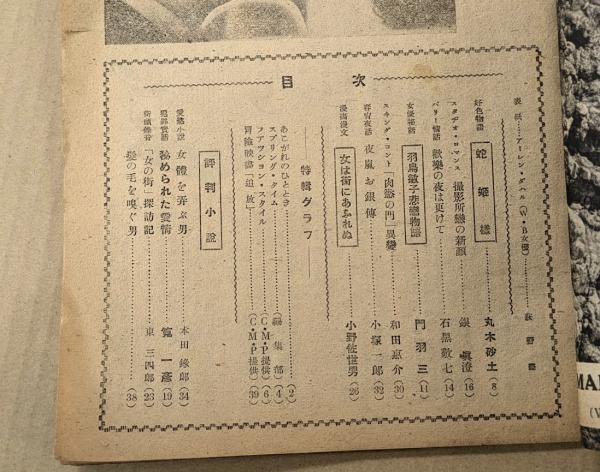 目次
表紙……アーレン・ダハル(W・B女優)
好色物語 蛇姫様……丸木砂土(8)
スタヂオ・ロマンス 撮影所戀の新顔……銀眞澄(16)
パリー情話 歡樂の夜は更けて……石黒敬七(14)
女優秘話 羽鳥敏子悲戀物語……門羽三(11)
スキング・コント「肉慾の門」異變……和田惠介(30)
春宵夜話 夜嵐お銀傳……小塚一郎(32)
漫画漫文 女は街にあふれぬ……小野佐世男(26)
特輯グラフ
あこがれのひととき……(2)
スプリング・タイム……(編集部)(4)
フアツション・スタイル……(C・M・P提供)(6)
冒險映画「追放」……(C・M・P提供)(39)
評判小説
愛慾小説 女體を弄ぶ男……本田緑郎(34)
犯罪實話 秘められた愛情……寛一彦(19)
街頭録音「女の街」探訪記……東三四郎(23)
髪の毛を嗅ぐ男……(38)
MA
(V